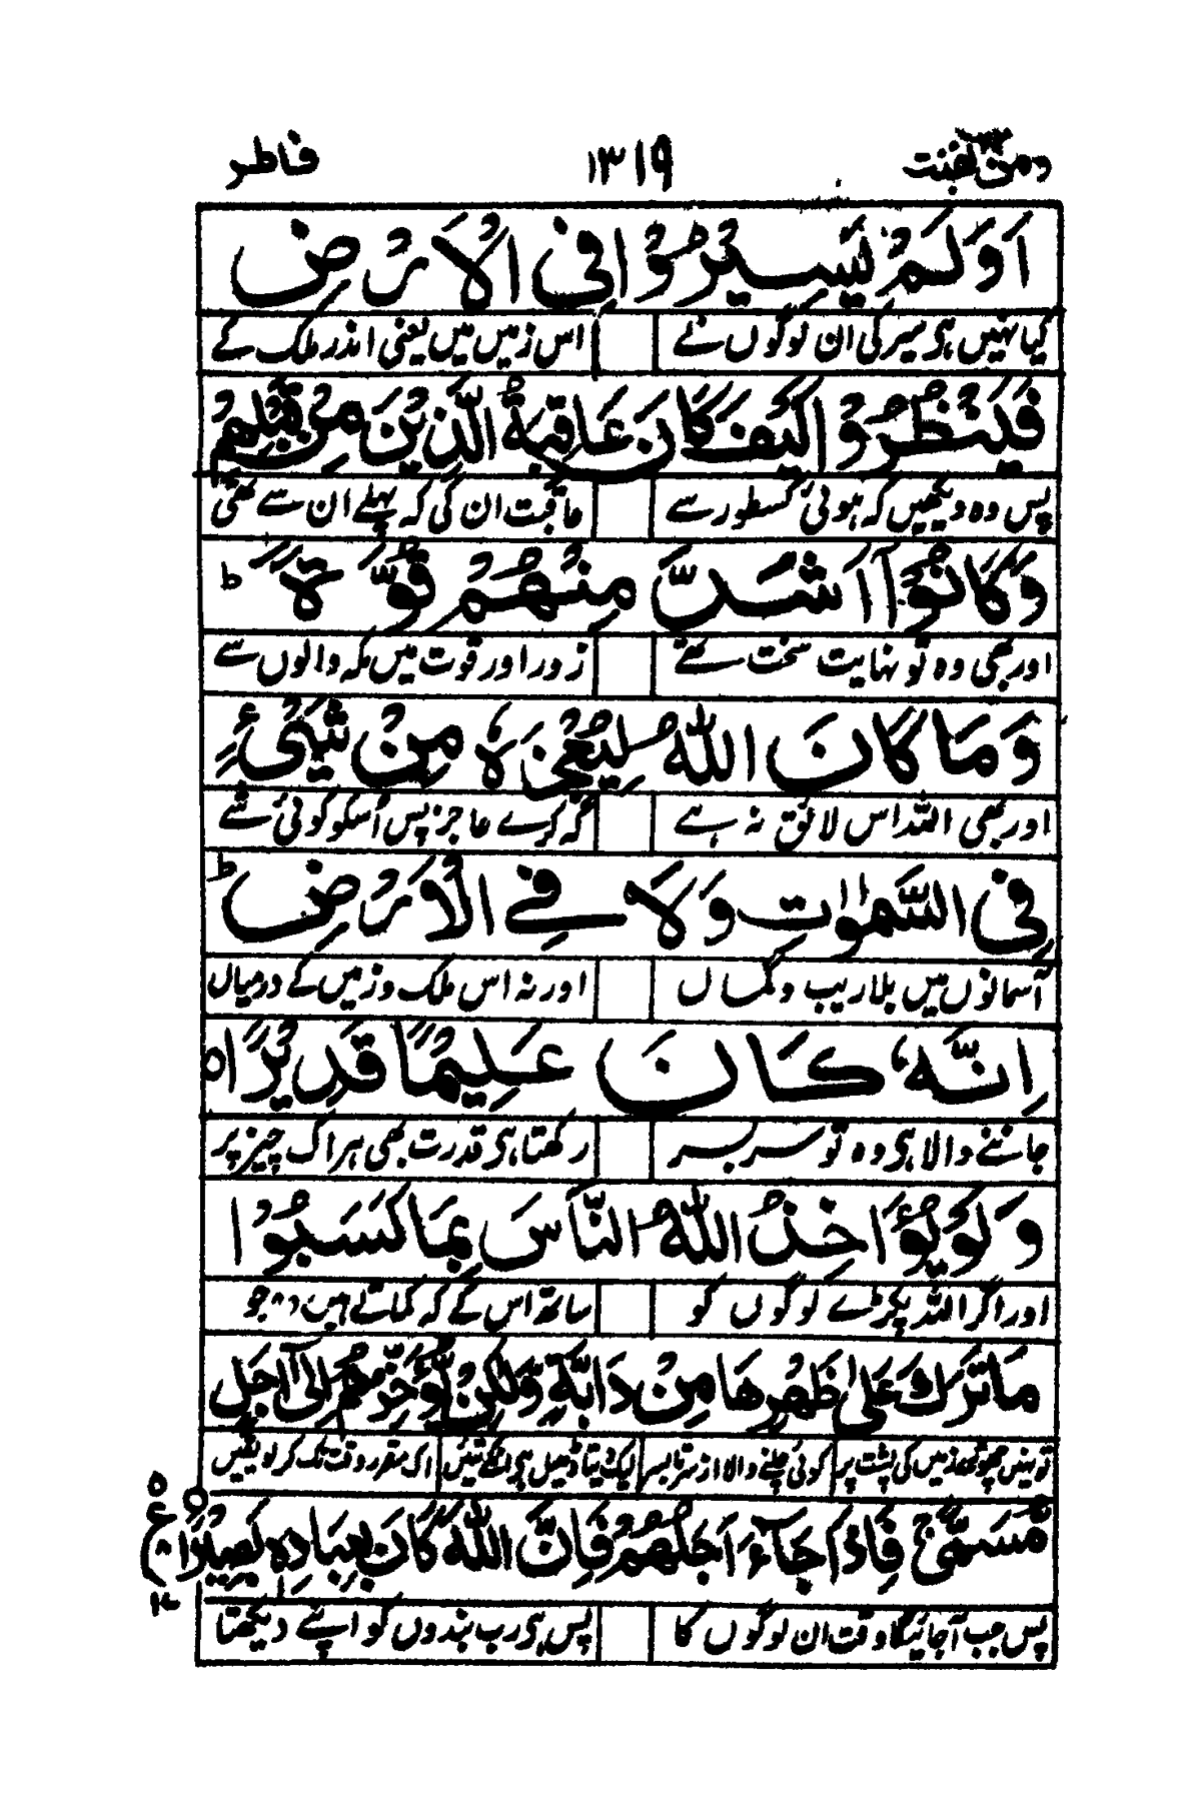 ومن يقنت ۲۲ ۱۳۱۹ فاطر
اَوَلَمْ يَسِيْرُوْا فِي الْاَرْضِ
کیا نہیں ہی سیر کی ان لوگوں نے اس زمیں میں یعنی اندر ملک کے
فَيَنْظُرُوْا كَيْفَ كَانَ عَاقِبَةُ الَّذِيْنَ مِنْ قَبْلِهِمْ
پس وہ دیکھیں کہ ہوئی کسطور سے عاقبت ان کی کہ پہلے ان سے تھی
وَكَانُوْٓا اَشَدَّ مِنْهُمْ قُوَّةً ؕ
اور بھی وہ تو نہایت سخت تھے زور اور قوت میں مکہ والوں سے
وَمَا كَانَ اللّٰهُ لِيُعْجِزَهٗ مِنْ شَيْءٍ
اور بھی اللہ اس لائق نہ ہے کہ کرے عاجز پس اُسکو کوئی شے
فِي السَّمٰوٰتِ وَلَا فِي الْاَرْضِ ؕ
آسمانوں میں بلا ریب و گماں اور نہ اس ملک و زمیں کے درمیاں
اِنَّهٗ كَانَ عَلِيْمًا قَدِيْرًا ۝
جاننے والا ہی وہ تو سر بسر رکھتا ہی قدرت بھی ہر اک چیز پر
وَلَوْ يُؤَاخِذُ اللّٰهُ النَّاسَ بِمَا كَسَبُوْا
اور اگر اللہ پکڑے لوگوں کو ساتھ اس کے کہ کماتے ہیں وہ جو
مَا تَرَكَ عَلٰى ظَهْرِهَا مِنْ دَآبَّةٍ وَّلٰكِنْ يُّؤَخِّرُهُمْ اِلٰٓى اَجَلٍ
تو نہیں چھوڑے زمیں کی پشت پر کوئی چلنے والا از سر تا بسر لیک دیتا ڈھیل ہی انکے تئیں اک مقرر وقت تک کر لو یقیں
مُّسَمًّى ۚ فَاِذَا جَآءَ اَجَلُهُمْ فَاِنَّ اللّٰهَ كَانَ بِعِبَادِهٖ بَصِيْرًا ۝ ع
پس جب آ جائیگا وقت ان لوگوں کا پس ہی رب بندوں کو اپنے دیکھتا